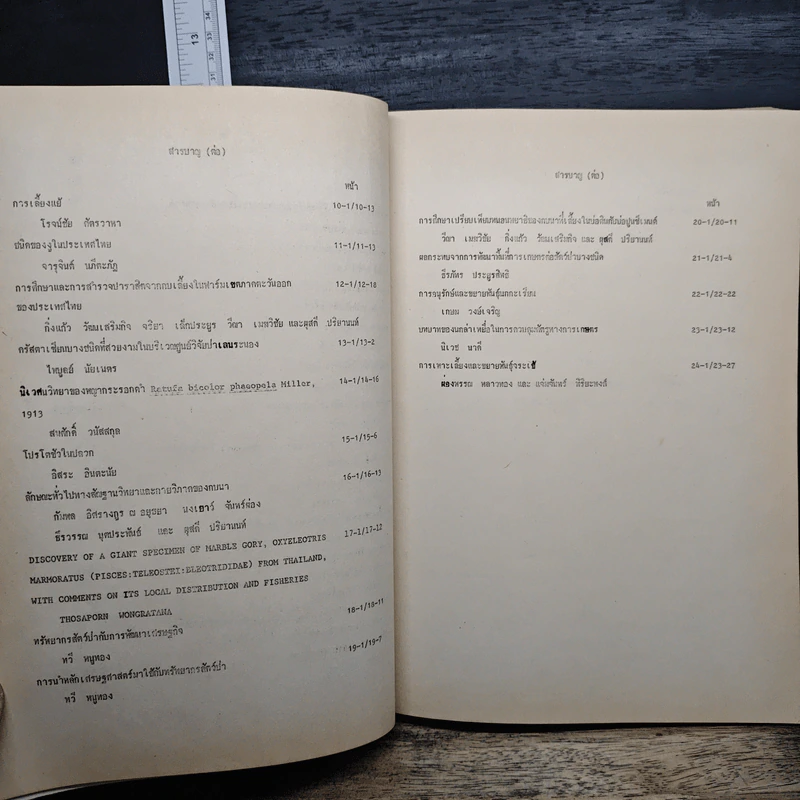 สารบาญ (ต่อ)
หน้า
การเลี้ยงแย้ 10-1/10-13
โรจน์ชัย ภัตรวาหา
ชนิดของงูในประเทศไทย 11-1/11-13
จารุจินต์ นภีตะภัฏ
การศึกษาและการสำรวจปาราสิตจากกบเลี้ยงในฟาร์มเขตภาคตะวันออก 12-1/12-18
ของประเทศไทย
กิ่งแก้ว วัฒนเสริมกิจ จริยา เล็กประยูร วีณา เมฆวิชัย และ ผุสตี ปริยานนท์
ครัสตาเซียนบางชนิดที่สวยงามในบริเวณศูนย์วิจัยป่าเลนระนอง 13-1/13-2
ไพบูลย์ นัยเนตร
นิเวศน์วิทยาของพญากระรอกดำ Ratufa bicolor phaeopela Miller, 14-1/14-16
1913
สมศักดิ์ วนัสสกุล
โปรโตซัวในปลวก 15-1/15-6
อิสระ อินตะนัย
ลักษณะทั่วไปทางสัณฐานวิทยาและกายวิภาคของกบนา 16-1/16-13
กำพล อิศรางกูร ณ อยุธยา นงเยาว์ จันทร์ผ่อง
ธีรวรรณ นุตประพันธ์ และ ผุสตี ปริยานนท์
DISCOVERY OF A GIANT SPECIMEN OF MARBLE GOBY, OXYELEOTRIS 17-1/17-12
MARMORATUS (PISCES:TELEOSTEI:ELEOTRIDIDAE) FROM THAILAND,
WITH COMMENTS ON ITS LOCAL DISTRIBUTION AND FISHERIES
THOSAPORN WONGRATANA
ทรัพยากรสัตว์ป่ากับการพัฒนาเศรษฐกิจ 18-1/18-11
ทวี หนูทอง
การนำหลักเศรษฐศาสตร์มาใช้กับทรัพยากรสัตว์ป่า 19-1/19-7
ทวี หนูทอง
สารบาญ (ต่อ)
หน้า
การศึกษาเปรียบเทียบหนอนพยาธิของกบนาที่เลี้ยงในบ่อดินกับบ่อปูนซีเมนต์ 20-1/20-11
วีณา เมฆวิชัย กิ่งแก้ว วัฒนเสริมกิจ และ ผุสตี ปริยานนท์
ผลกระทบจากการพัฒนาพื้นที่การเกษตรต่อสัตว์ป่าบางชนิด 21-1/21-4
ธีรภัทร ประยูรสิทธิ
การอนุรักษ์และขยายพันธุ์นกกระเรียน 22-1/22-22
เกษม วงษ์เจริญ
บทบาทของนกล่าเหยื่อในการควบคุมศัตรูทางการเกษตร 23-1/23-12
นิเวช นาดี
การเพาะเลี้ยงและขยายพันธุ์จระเข้ 24-1/23-27
ผ่องพรรณ หลาวทอง และ แจ่มจันทร์ ศิริยะพงส์